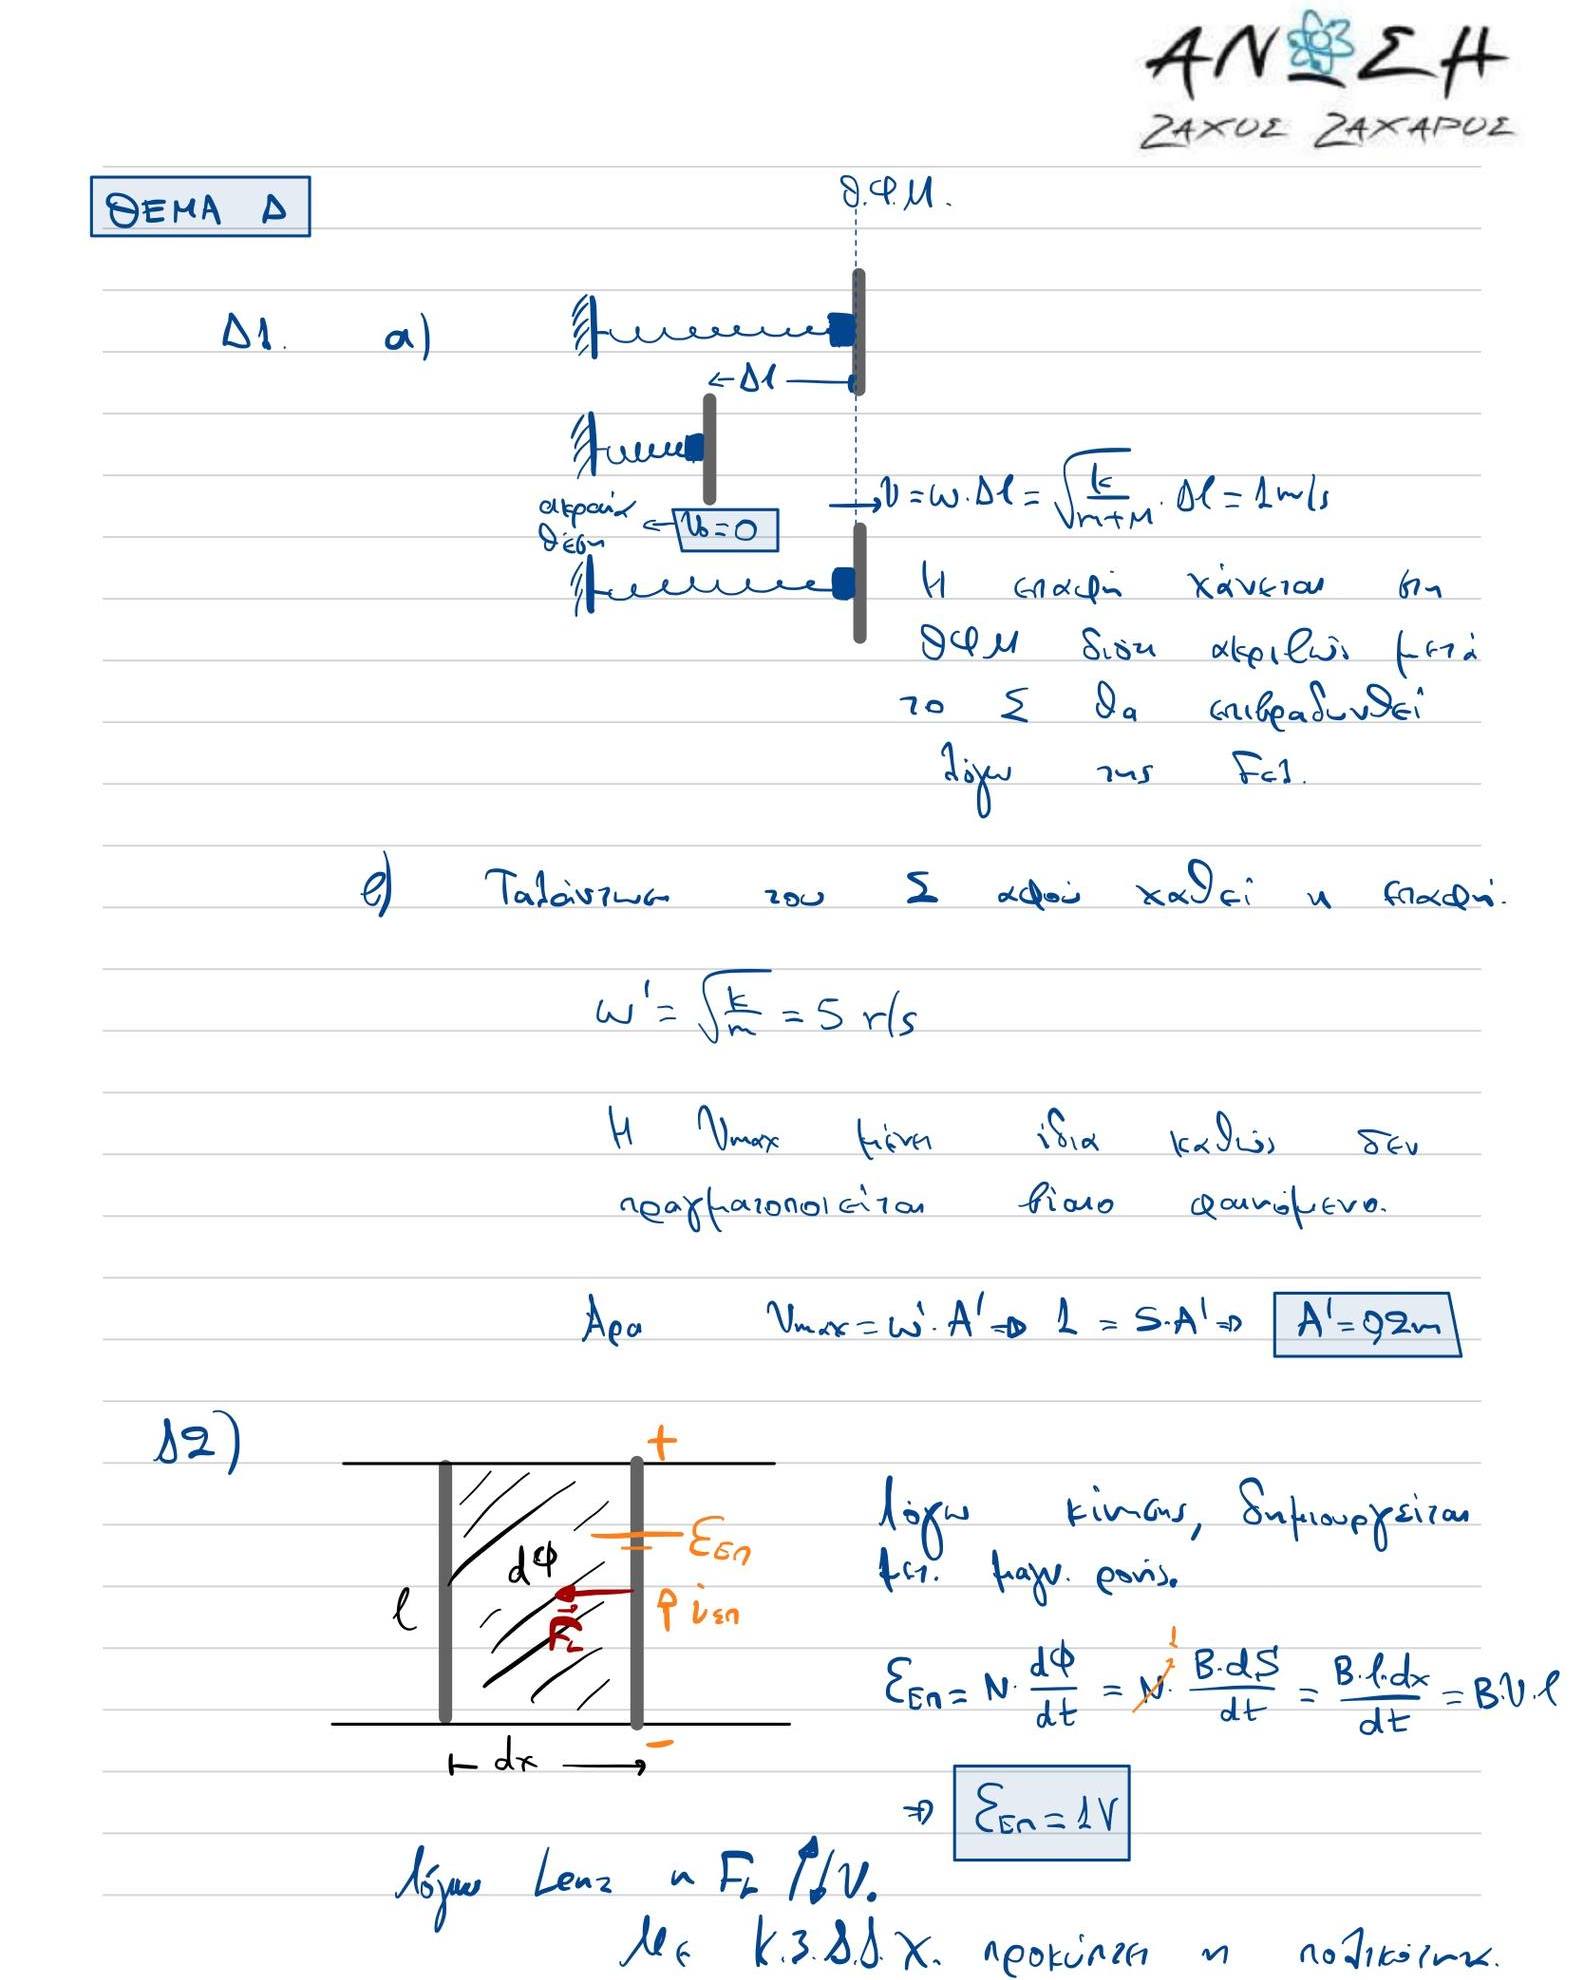 ΑΝΩΣΗ
ΖΑΧΟΣ ΖΑΧΑΡΟΣ
ΘΕΜΑ Δ
Θ.Φ.Μ.
Δ1. α)
Δl
υ = ω·Δl = √(k/(m+M)) · Δl = 1 m/s
ακραία
θέση
υ₀ = 0
Η επαφή χάνεται στη
ΘΦΜ διότι ακριβώς μετά
το Σ θα επιβραδυνθεί
λόγω της Fελ.
β) Ταλάντωση του Σ αφού χαθεί η επαφή.
ω' = √(k/m) = 5 r/s
Η υmax μένει ίδια καθώς δεν
πραγματοποιείται βίαιο φαινόμενο.
Άρα υmax = ω'·A' ⇒ 1 = 5·A' ⇒ A' = 0,2m
Δ2)
+
Λόγω κίνησης, δημιουργείται
μετ. μαγν. ροής.
Εεπ
dΦ
l
iεπ
FL
Εεπ = N· dΦ/dt = N·¹ B·dS/dt = B·l·dx/dt = B·υ·l
-
dx
⇒ Εεπ = 1V
Λόγω Lenz η FL ↑↓ υ.
Με κ.3.δ.δ.χ. προκύπτει η πολικότητα.